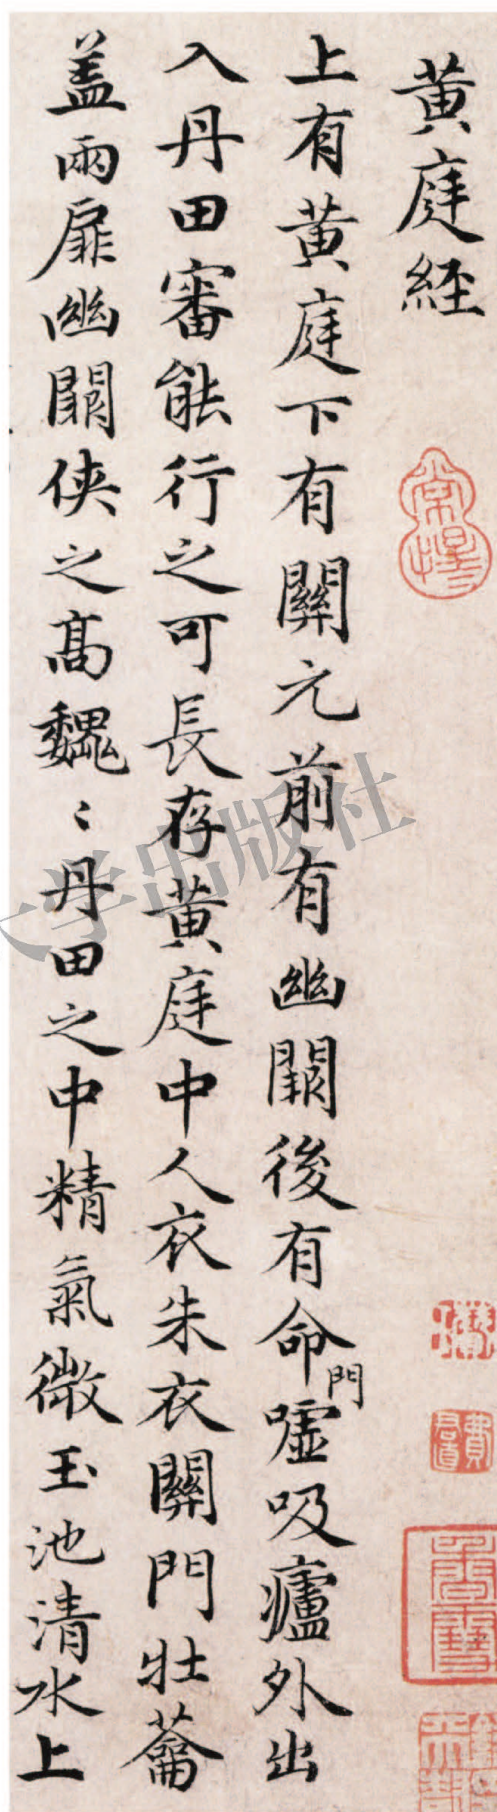 黄庭経
上有黄庭下有關元前有幽闕後有命門噓吸廬外出
入丹田審能行之可長存黄庭中人衣朱衣關門壯蘥
盖兩扉幽闕俠之髙巍〻丹田之中精氣微玉池清水上
大学出版社